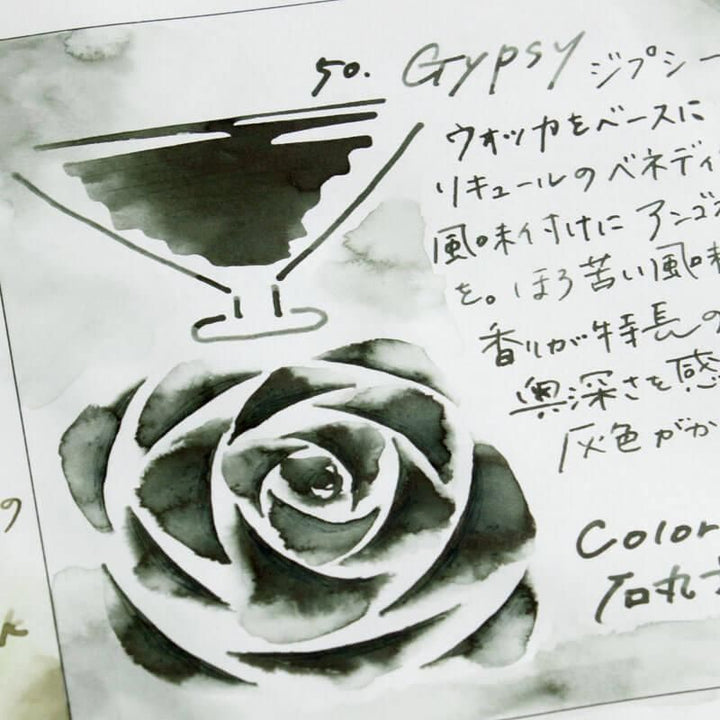 50. Gypsy ジプシー
ウオッカをベースに
リキュールのベネディ
風味付けにアンゴ
を。ほろ苦い風味
香りが特長の
奥深さを感
灰色がか
Color
石丸
の